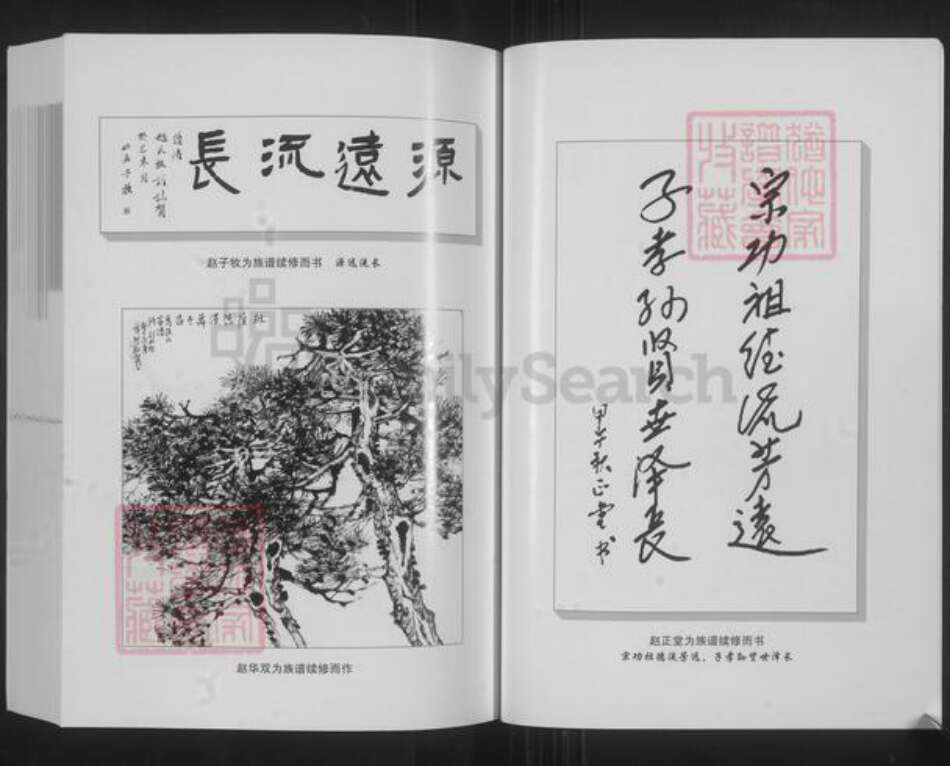 源遠流長
赵子牧为族谱续修而书 源远流长
赵华双为族谱续修而作
FamilySearch
宗功祖德流芳遠
子孝孙贤世泽長
甲午秋正堂书
赵正堂为族谱续修而书
宗功祖德流芳远，子孝孙贤世泽长